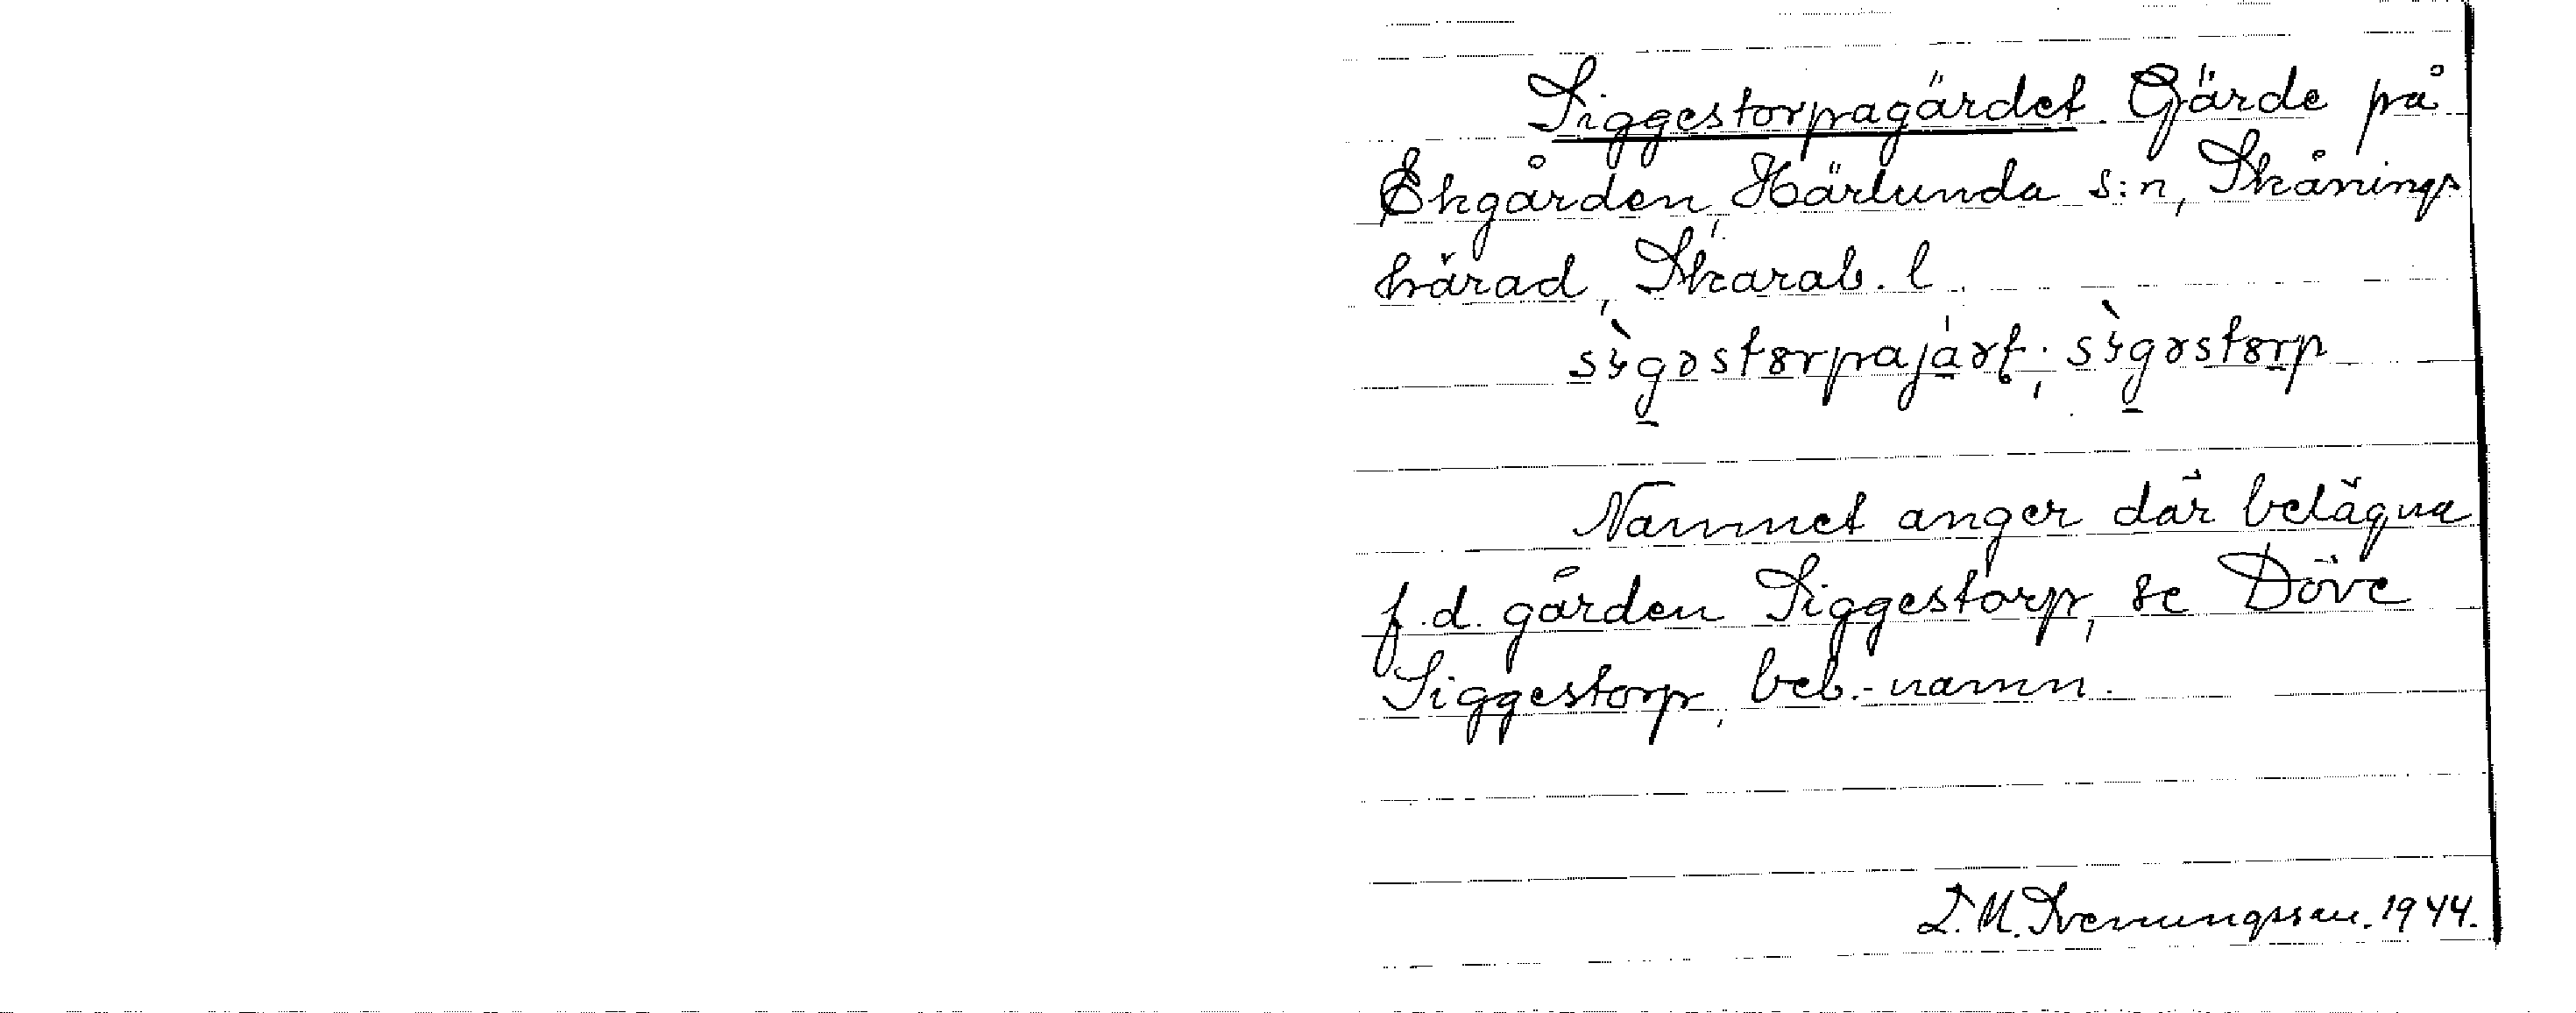 Siggestorpagärdet. Gärde på
Ekgården, Härlunda s:n, Skånings
härad, Skarab. l.
Namnet anger där belägna
f. d. gården Siggestorp, se Döve
Siggestorp, beb.-namn.
Svenungsson. 1944.